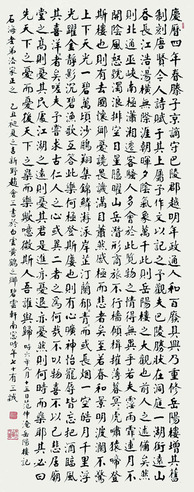 慶曆四年春滕子京謫守巴陵郡越明年政通人和百廢具興乃重修岳陽樓增其舊
制刻唐賢今人詩賦于其上屬予作文以記之予觀夫巴陵勝狀在洞庭一湖銜遠山
吞長江浩浩湯湯橫無際涯朝暉夕陰氣象萬千此則岳陽樓之大觀也前人之述備矣然
則北通巫峽南極瀟湘遷客騷人多會於此覽物之情得無異乎若夫霪雨霏霏連月不
開陰風怒號濁浪排空日星隱曜山岳潛形商旅不行檣傾楫摧薄暮冥冥虎嘯猿啼登
斯樓也則有去國懷鄉憂讒畏譏滿目蕭然感極而悲者矣至若春和景明波瀾不驚
上下天光一碧萬頃沙鷗翔集錦鱗游泳岸芷汀蘭郁郁青青而或長煙一空皓月千里浮
光躍金靜影沉璧漁歌互答此樂何極登斯樓也則有心曠神怡寵辱皆忘把酒臨風
其喜洋洋者矣嗟夫予嘗求古仁人之心或異二者之為何哉不以物喜不以己悲居廟
堂之高則憂其民處江湖之遠則憂其君是進亦憂退亦憂然則何時而樂耶其必曰
先天下之憂而憂後天下之樂而樂歟噫微斯人吾誰與歸時六年九月十五日范仲淹岳陽樓記